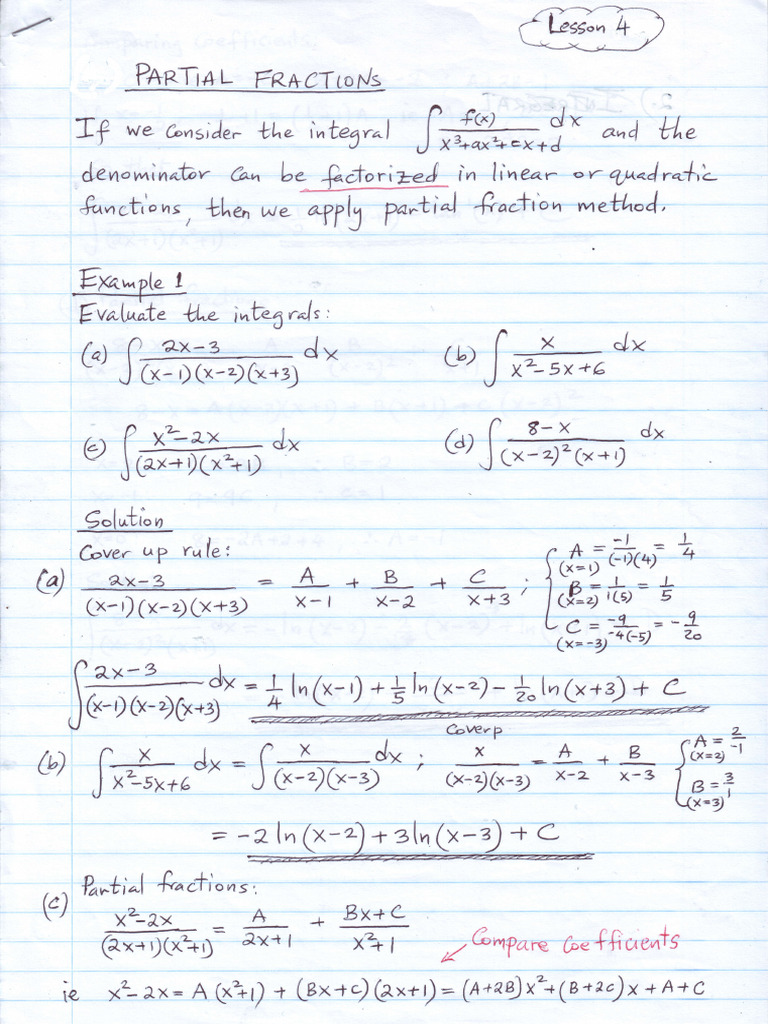 Lesson 4
PARTIAL FRACTIONS
If we consider the integral ∫ f(x)/(x³+ax²+cx+d) dx and the
denominator can be factorized in linear or quadratic
functions, then we apply partial fraction method.
Example 1
Evaluate the integrals:
(a) ∫ (2x-3)/((x-1)(x-2)(x+3)) dx (b) ∫ x/(x²-5x+6) dx
(c) ∫ (x²-2x)/((2x+1)(x²+1)) dx (d) ∫ (8-x)/((x-2)²(x+1)) dx
Solution
Cover up rule:
(a) (2x-3)/((x-1)(x-2)(x+3)) = A/(x-1) + B/(x-2) + C/(x+3) ;
A = -1/((-1)(4)) = 1/4
(x=1)
B = 1/(1(5)) = 1/5
(x=2)
C = -9/(-4(-5)) = -9/20
(x=-3)
∫ (2x-3)/((x-1)(x-2)(x+3)) dx = 1/4 ln(x-1) + 1/5 ln(x-2) - 1/20 ln(x+3) + C
Coverp
(b) ∫ x/(x²-5x+6) dx = ∫ x/((x-2)(x-3)) dx ; x/((x-2)(x-3)) = A/(x-2) + B/(x-3)
A = 2/-1
(x=2)
B = 3/1
(x=3)
= -2 ln(x-2) + 3 ln(x-3) + C
(c) Partial fractions:
(x²-2x)/((2x+1)(x²+1)) = A/(2x+1) + (Bx+C)/(x²+1)
Compare coefficients
ie x²-2x = A(x²+1) + (Bx+C)(2x+1) = (A+2B)x²+(B+2C)x+A+C